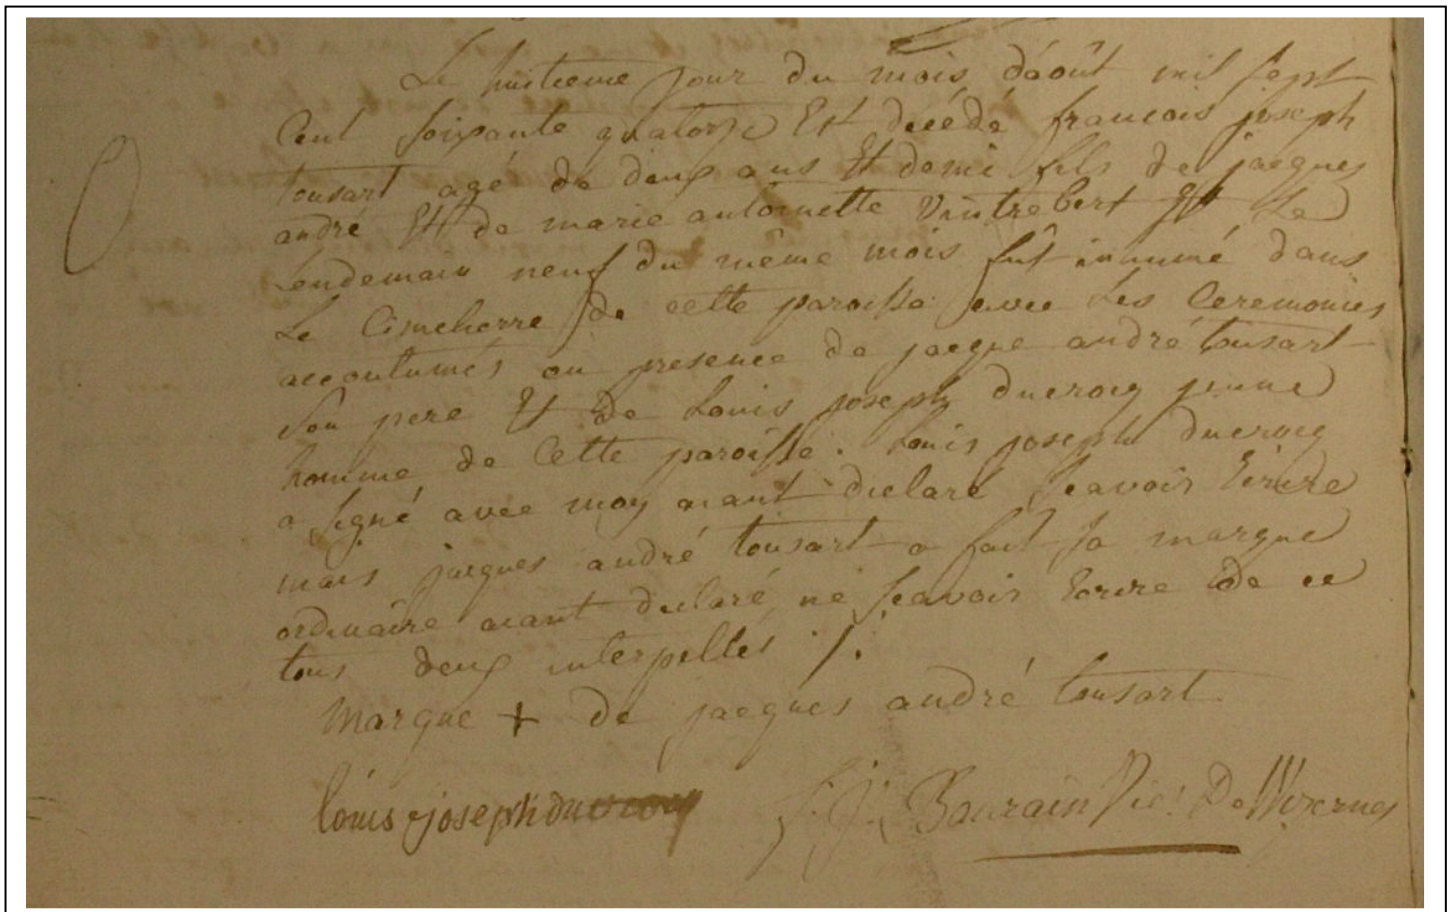 Le huitieme jour du mois d'août mil sept
Cent soixante quatorze Est décédé francois joseph
tousart agé de deux ans Et demi fils de jacques
andré Et de marie antoinette Vintrebert Et Le
Lendemain neuf du même mois fut inhumé dans
Le Cimetierre de cette paroisse avec Les Ceremonies
accoutumés en presence de jacque andré tousart
son pere Et de Louis joseph ducrocq jeune
homme de Cette paroisse. Louis joseph ducrocq
a signé avec moy aiant declaré scavoir Ecrire
mais jacques andré tousart a fait sa marque
ordinaire aiant declaré ne scavoir Ecrire de ce
tous deux interpellés ./.
Marque + de jacques andré tousart
louis joseph ducrocq
Bourain Vic. De Wizernes